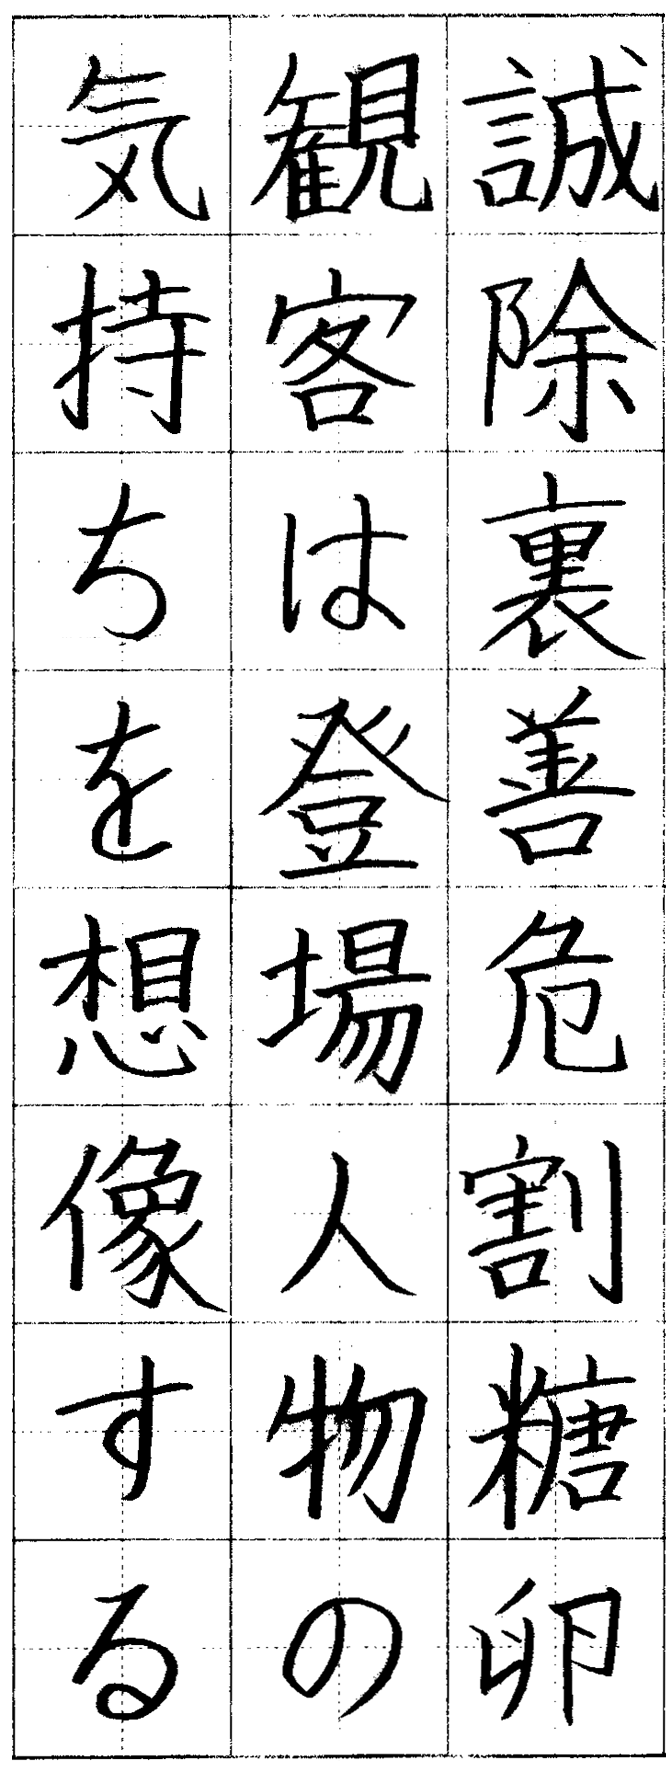 誠除裏善危割糖卵
観客は登場人物の
気持ちを想像する